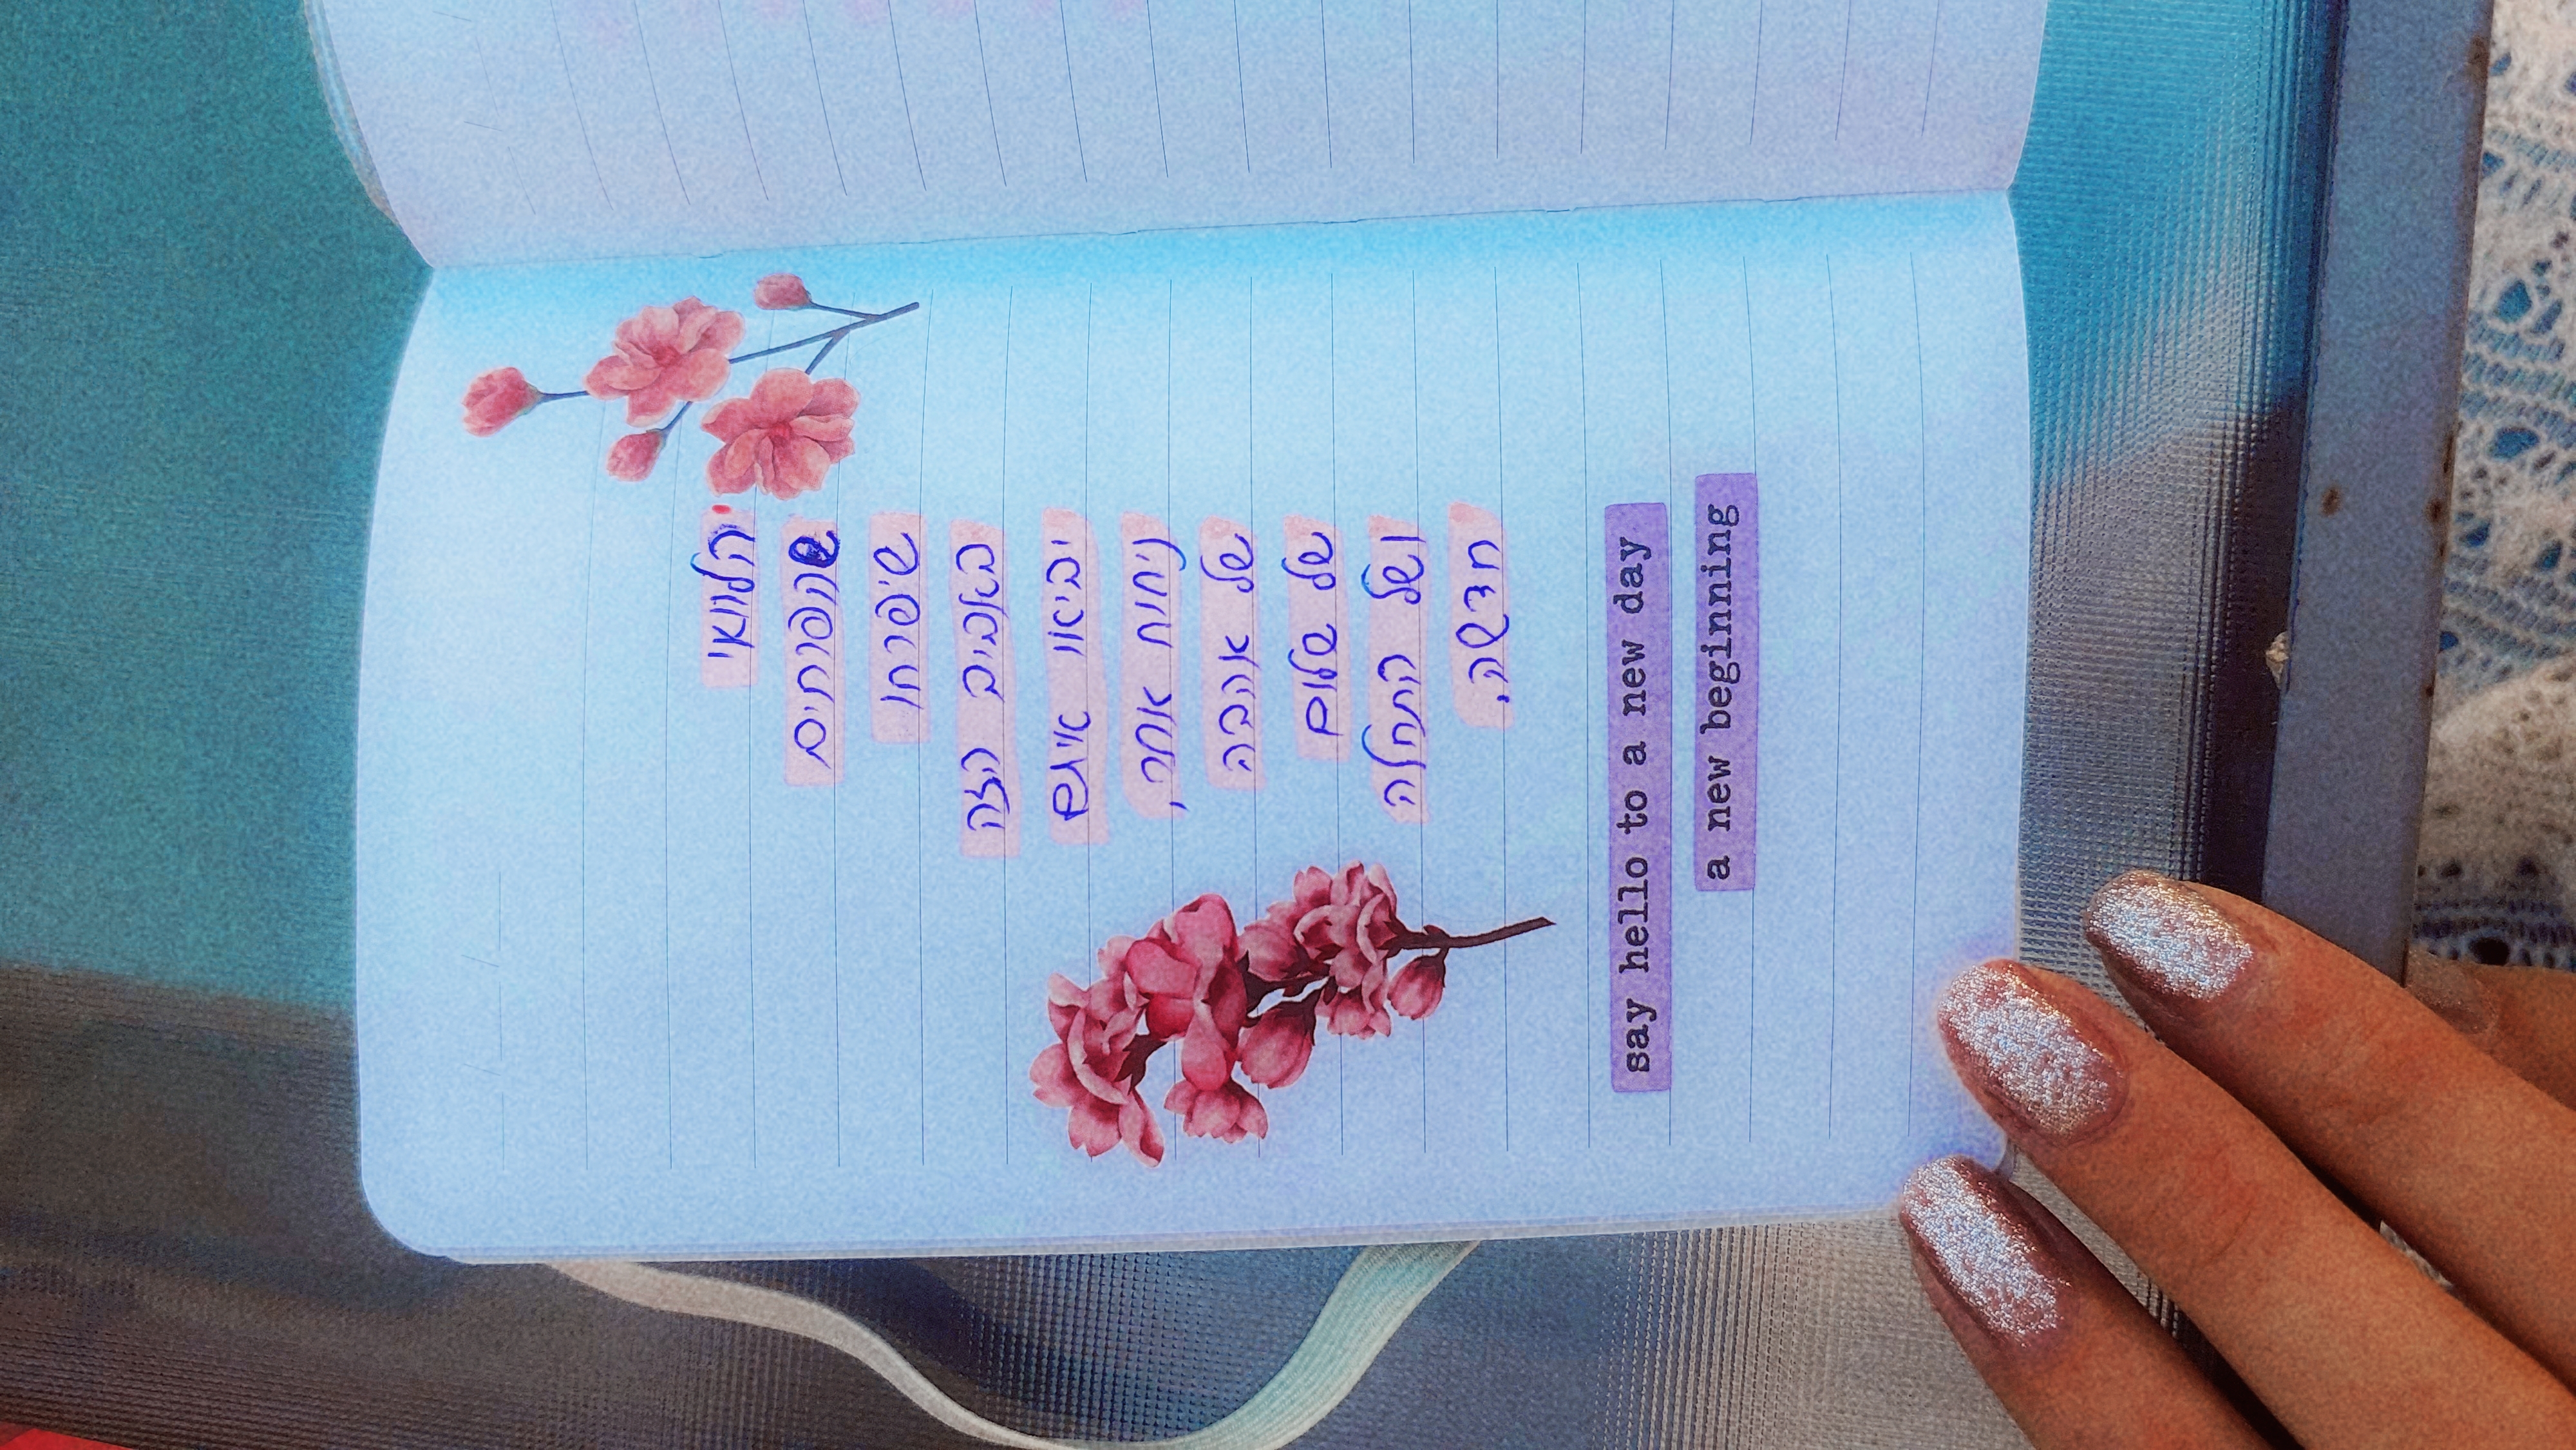 הלוואי
שהפרחים
שיפרחו
באביב הזה
יביאו איתם
ניחוח אחר,
של אהבה
של שלום
ושל התחלה
חדשה.
say hello to a new day
a new beginning